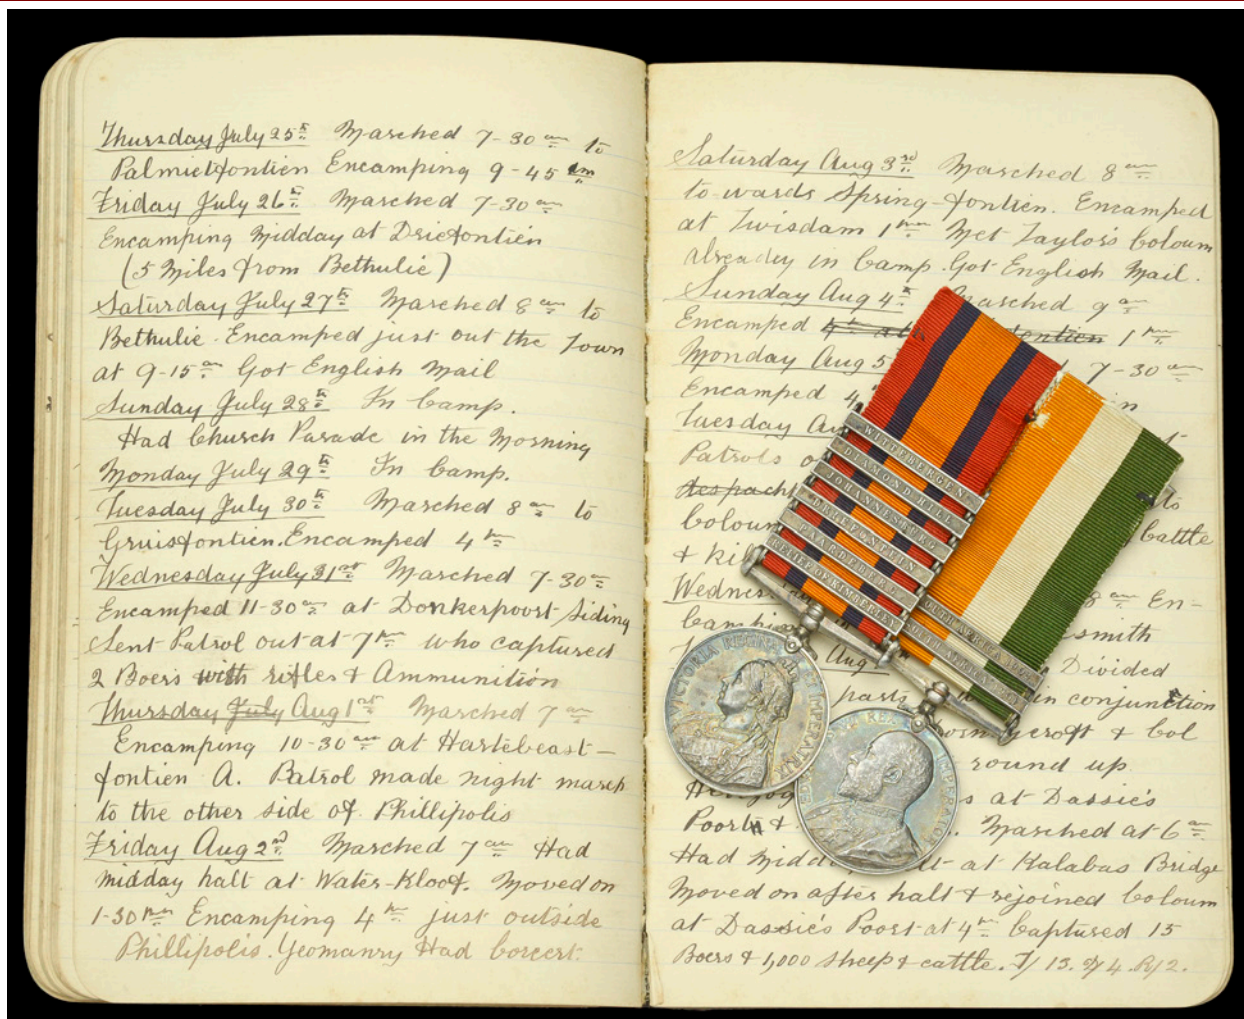 Thursday July 25th Marched 7-30 am to
Palmietfontien Encamping 9-45 am
Friday July 26th Marched 7-30 am
Encamping Midday at Driefontien
(5 Miles from Bethulie)
Saturday July 27th Marched 8 am to
Bethulie. Encamped just out the Town
at 9-15 am Got English Mail
Sunday July 28th In Camp.
Had Church Parade in the Morning
Monday July 29th In Camp.
Tuesday July 30th Marched 8 am to
Gruisfontien. Encamped 4 pm
Wednesday July 31st Marched 7-30 am
Encamped 11-30 am at Donkerpoort Siding
Sent Patrol out at 7 pm who captured
2 Boers with rifles & Ammunition
Thursday July Aug 1st Marched 7 am
Encamping 10-30 am at Hartebeast-
fontien A. Patrol made night march
to the other side of Phillipolis
Friday Aug 2nd Marched 7 am Had
midday halt at Water-Kloof. Moved on
1-30 pm Encamping 4 pm just outside
Phillipolis. Yeomanry Had Concert.
Saturday Aug 3rd Marched 8 am
to-wards Spring-fontien. Encamped
at Twisdam 1 pm Met Taylor's Coloum
already in Camp. Got English Mail.
Sunday Aug 4th Marched 9 am
Encamped 1 pm
Monday Aug 5 7-30 am
Encamped 4
Tuesday
Patrols
to
cattle
&
8 am En-
smith
Aug Divided
parts in conjunction
& Col
round up
s at Dassie's
Poort & Marched at 6 am
Had at Kalabas Bridge
Moved on after halt & rejoined Coloum
at Dassie's Poort at 4 pm Captured 15
Boers & 1,000 sheep & cattle.
WITTEBERGEN
DIAMOND HILL
JOHANNESBURG
DRIEFONTEIN
PAARDEBERG
RELIEF OF KIMBERLEY
SOUTH AFRICA
SOUTH AFRICA
VICTORIA REGINA ET IMPERATRIX
EDWARDVS REX IMPERATOR